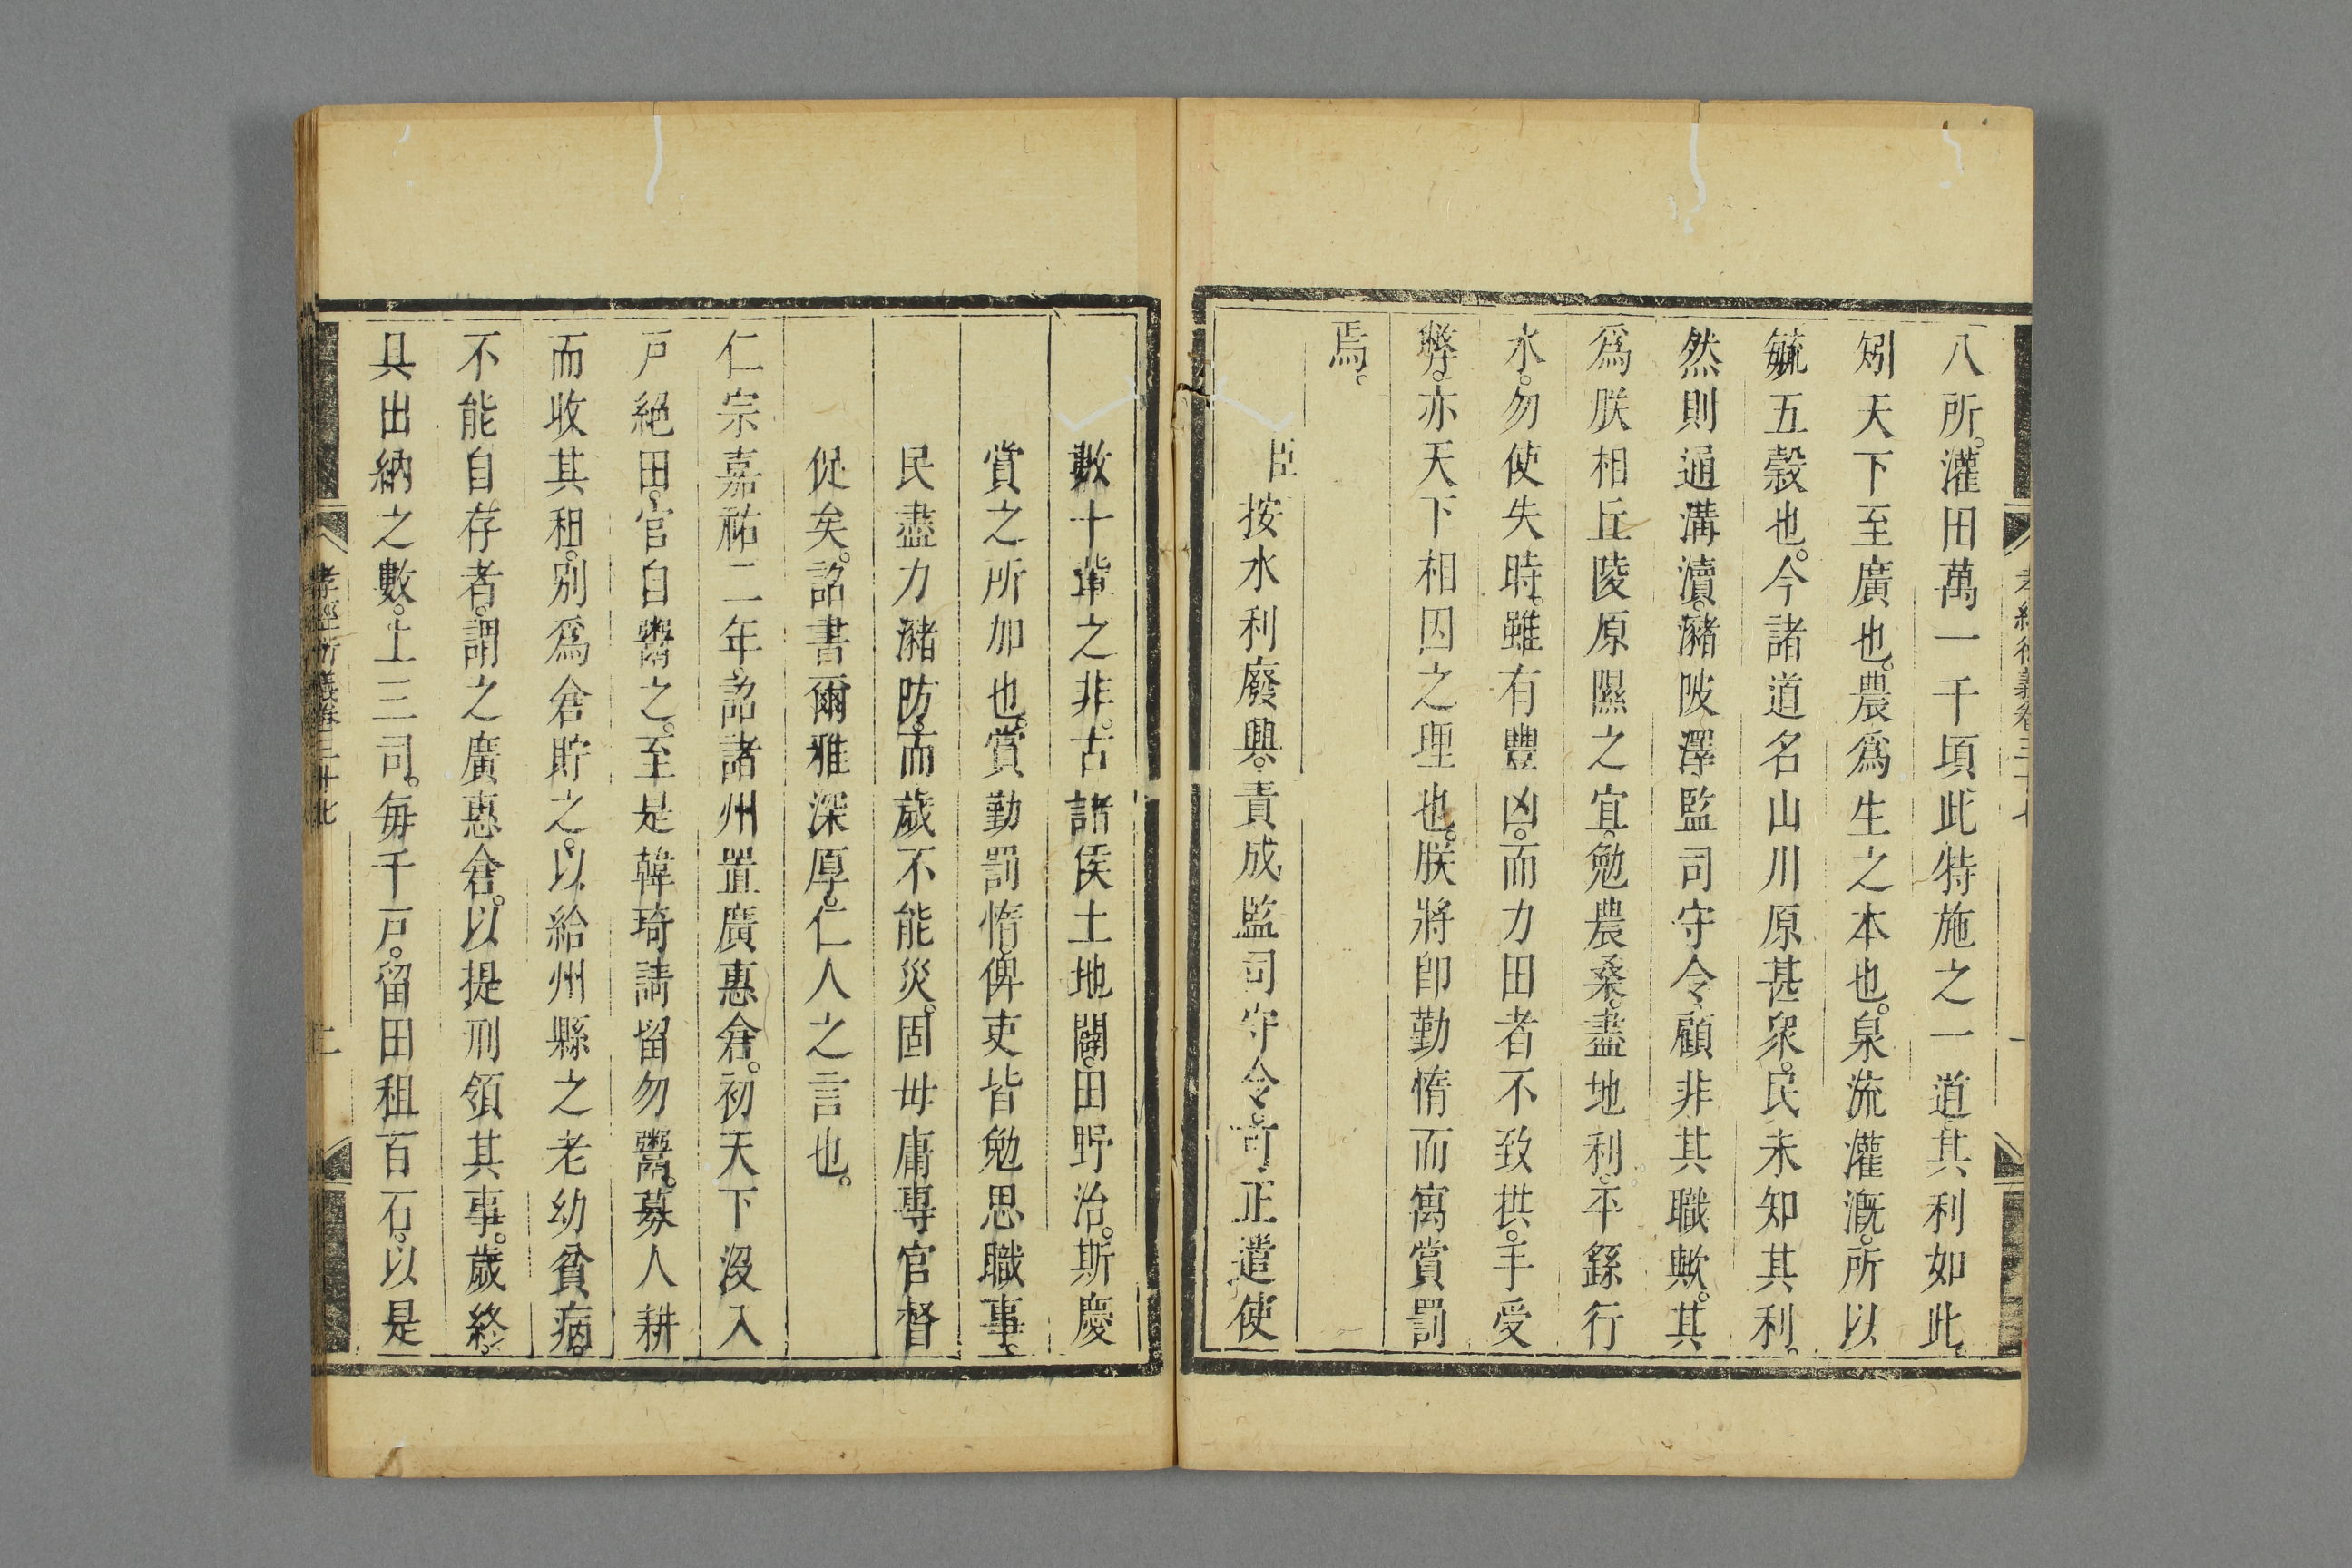 八所。灌田萬一千頃此特施之一道。其利如此。
矧天下至廣也。農爲生之本也。泉流灌漑。所以
毓五穀也。今諸道名山川原甚衆。民未知其利。
然則通溝瀆。瀦陂澤監司守令顧非其職歟。其
爲朕相丘陵原隰之宜。勉農桑。盡地利。平繇行
水。勿使失時。雖有豐凶。而力田者不致拱。手受
弊。亦天下相因之理也。朕將卽勤惰而寓賞罰
焉。
臣按水利廢興。責成監司守令。奇正遣使
數十輩之非。古諸侯土地闢。田野治。斯慶
賞之所加也。賞勤罰惰。俾吏皆勉思職事。
民盡力瀦防。而歲不能災。固毋庸專官督
促矣。詔書爾雅深厚。仁人之言也。
仁宗嘉祐二年。詔諸州置廣惠倉。初天下沒入
戶絕田。官自鬻之。至是韓琦請留勿鬻。募人耕
而收其租。別爲倉貯之。以給州縣之老幼貧病。
不能自存者。謂之廣惠倉。以提刑領其事。歲終。
具出納之數。上三司。每千戶。留田租百石。以是
孝經衍義卷三十七
二